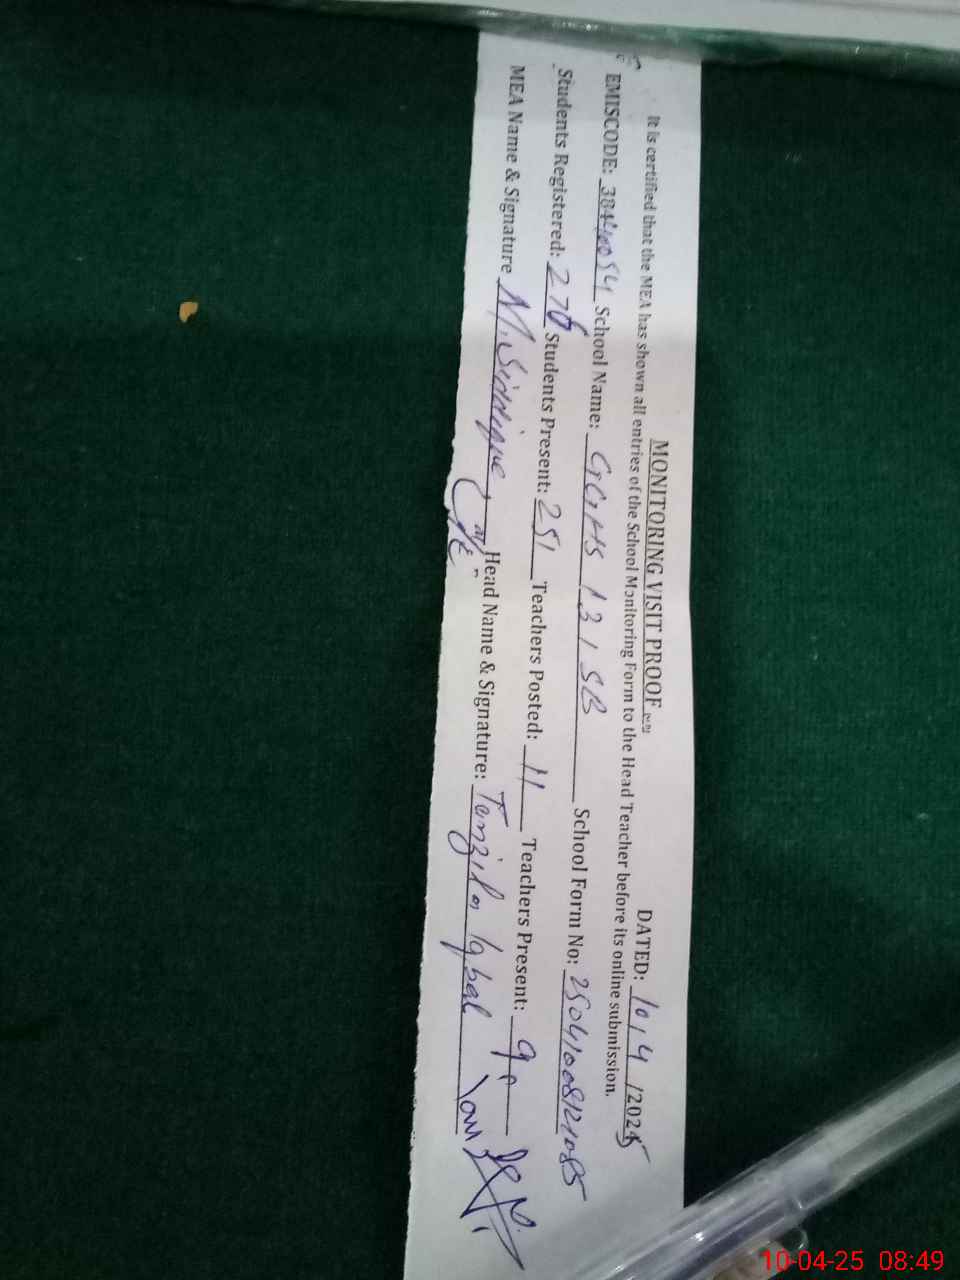 MONITORING VISIT PROOF
DATED: 10/4/2025
It is certified that the MEA has shown all entries of the School Monitoring Form to the Head Teacher before its online submission.
EMISCODE: 38440054 School Name: GGHS 131 SB School Form No: 25041008121085
Students Registered: 276 Students Present: 251 Teachers Posted: 11 Teachers Present: 9
MEA Name & Signature M. Siddique Head Name & Signature: Tanzila Iqbal
10-04-25 08:49